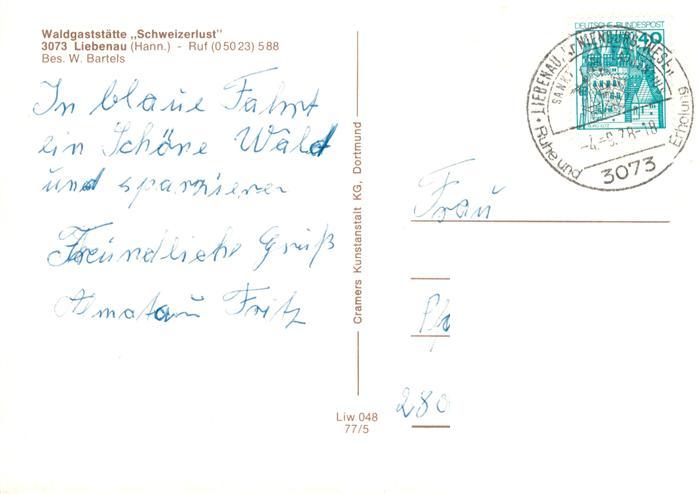 Waldgaststätte „Schweizerlust"
3073 Liebenau (Hann.) - Ruf (05023) 588
Bes. W. Bartels
In blaue Fahrt
ein Schöne Wald
und spazieren
Freundliche Gruß
Fritz
Cramers Kunstanstalt KG, Dortmund
Liw 048
77/5
DEUTSCHE BUNDESPOST
40
LIEBENAU
-4.-9.78-18
Ruhe und Erholung
3073
Frau
280